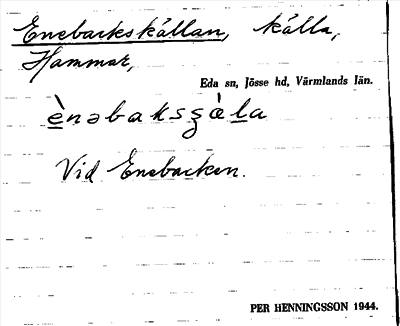 Enebackskällan, källa,
Hammar,
Eda sn, Jösse hd, Värmlands län.
ènəbaksʂὰla
Vid Enebacken.
PER HENNINGSSON 1944.